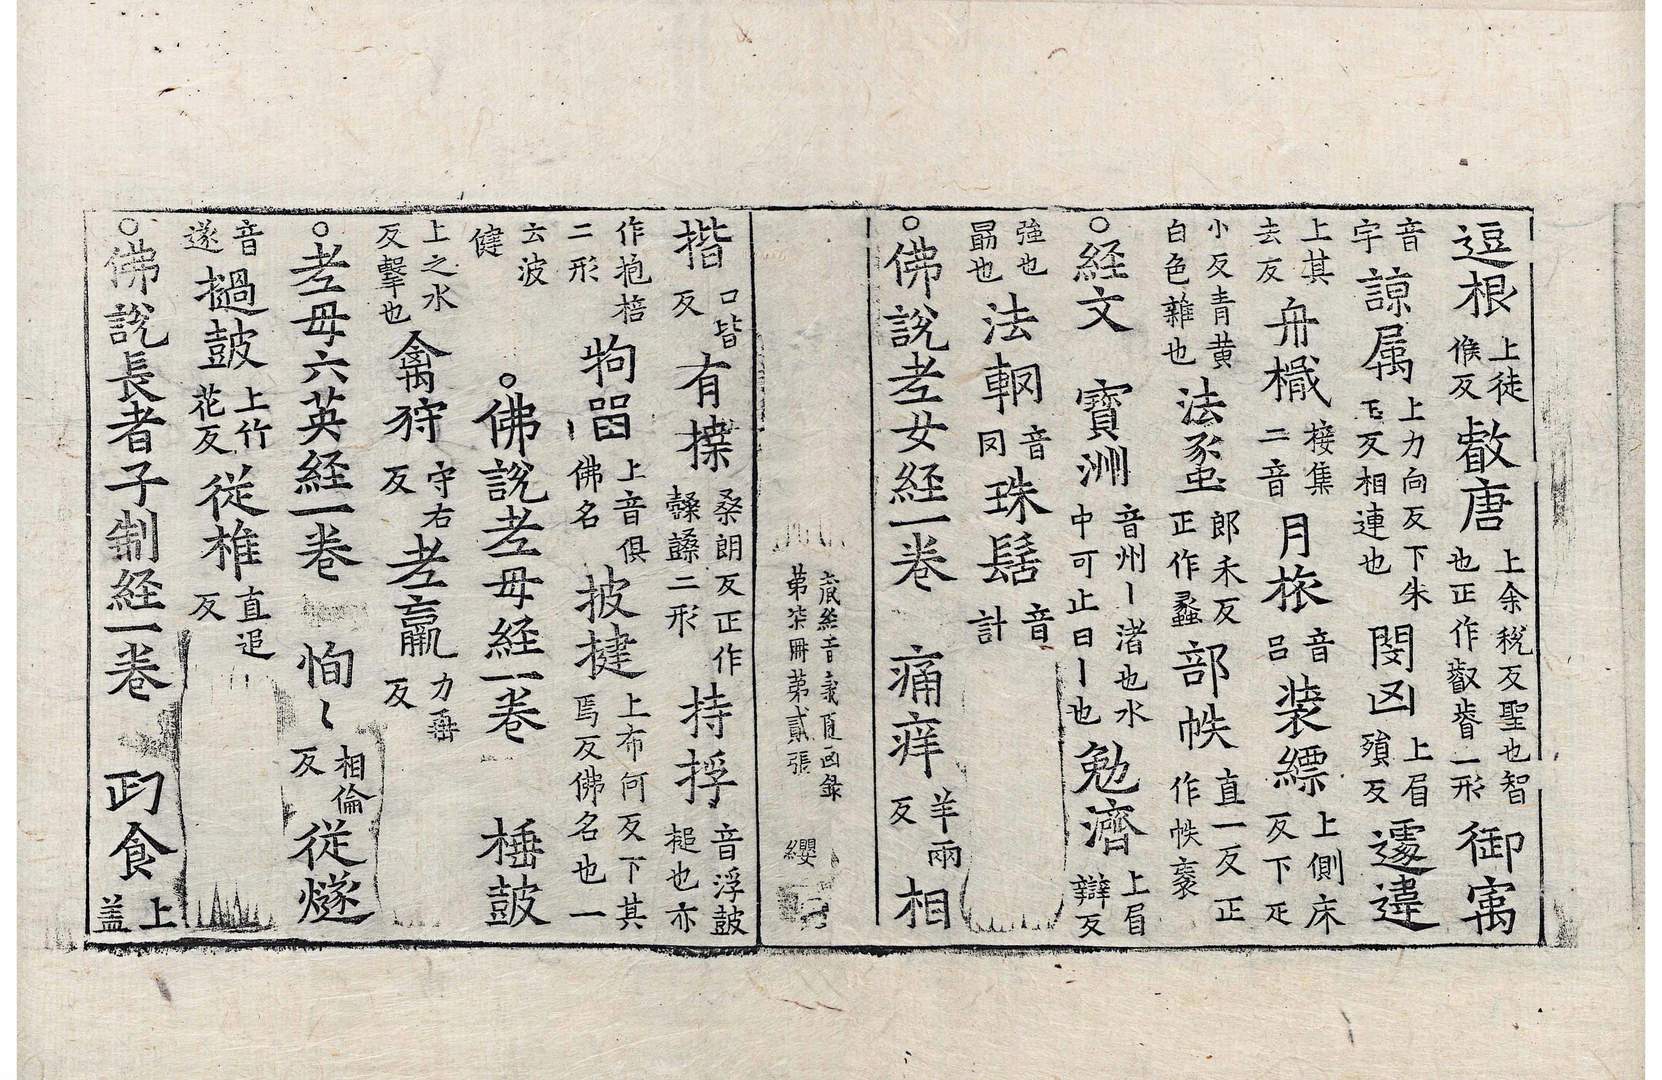 逗根上徒候反叡唐上余稅反聖也智也正作叡睿一形御寓
音宇諒属上力向反下朱玉反相連也閔凶上眉殞反遽違
上其去反舟檝接集二音月旅音呂装縹上側床反下疋
小反青黃白色雜也法䖟郎禾反正作蠡部帙直一反正作帙袠
○経文 寶洲音州丨渚也水中可止曰丨也勉濟上眉辯反
強也勗也法輞音罔珠髻音計
○佛說孝女経一卷 痛痒羊兩反相
藏経音義随函録 第柒冊第貳張 纓
揩口皆反有㨞桑朗反正作䫙鎟二形持捊音浮皷槌也亦
作抱棓二形 㹨㽞上音俱佛名披揵上布何反下其焉反佛名也一
云波健 ○佛說孝母経一卷 棰皷
上之水反擊也禽狩守右反孝羸力垂反
○孝母六英経一卷 恂〻相倫反從燧
音遂撾皷上竹花反從椎直追反
○佛說長者子制経一卷 匃食上盖